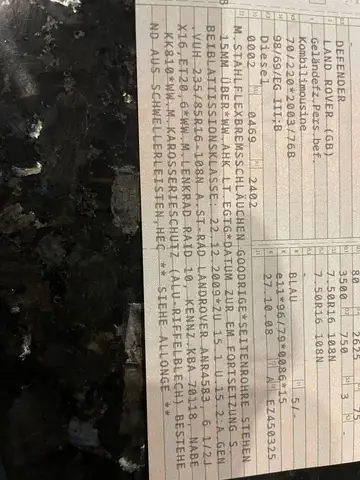 DEFENDER
LAND ROVER (GB)
Geländefz.Pers.bef.
Kombilimousine
70/220*2003/76B
98/69/EG III;B
Diesel
0002 0469 2402
80 2625
3500 750 3 -
7.50R16 108N
7.50R16 108N
-
BLAU 5/-
e11*96/79*0086*15
27.10.08 A EZ450325
M.STAHLFLEXBREMSSCHLÄUCHEN GOODRIGE*SEITENROHRE STEHEN
15MM ÜBER*WW.AHK LT.EGTG*DATUM ZUR EM FORTSETZUNG S.
BEIBLATTSSIONSKLASSE: 22.12.2009*ZU 15.1 U.15.2:A.GEN
.VUH 235/85R16-108N A.ST-RAD LANDROVER ANR4583, 6 1/2J
X16,ET20,6*WW.M.LENKRAD RAID 10, KENNZ.KBA 70118, NABE
KK810*WW.M.KAROSSERIESCHUTZ (ALU-RIFFELBLECH) BESTEHE
ND AUS SCHWELLERLEISTEN,HEC ** SIEHE ALLONGE **